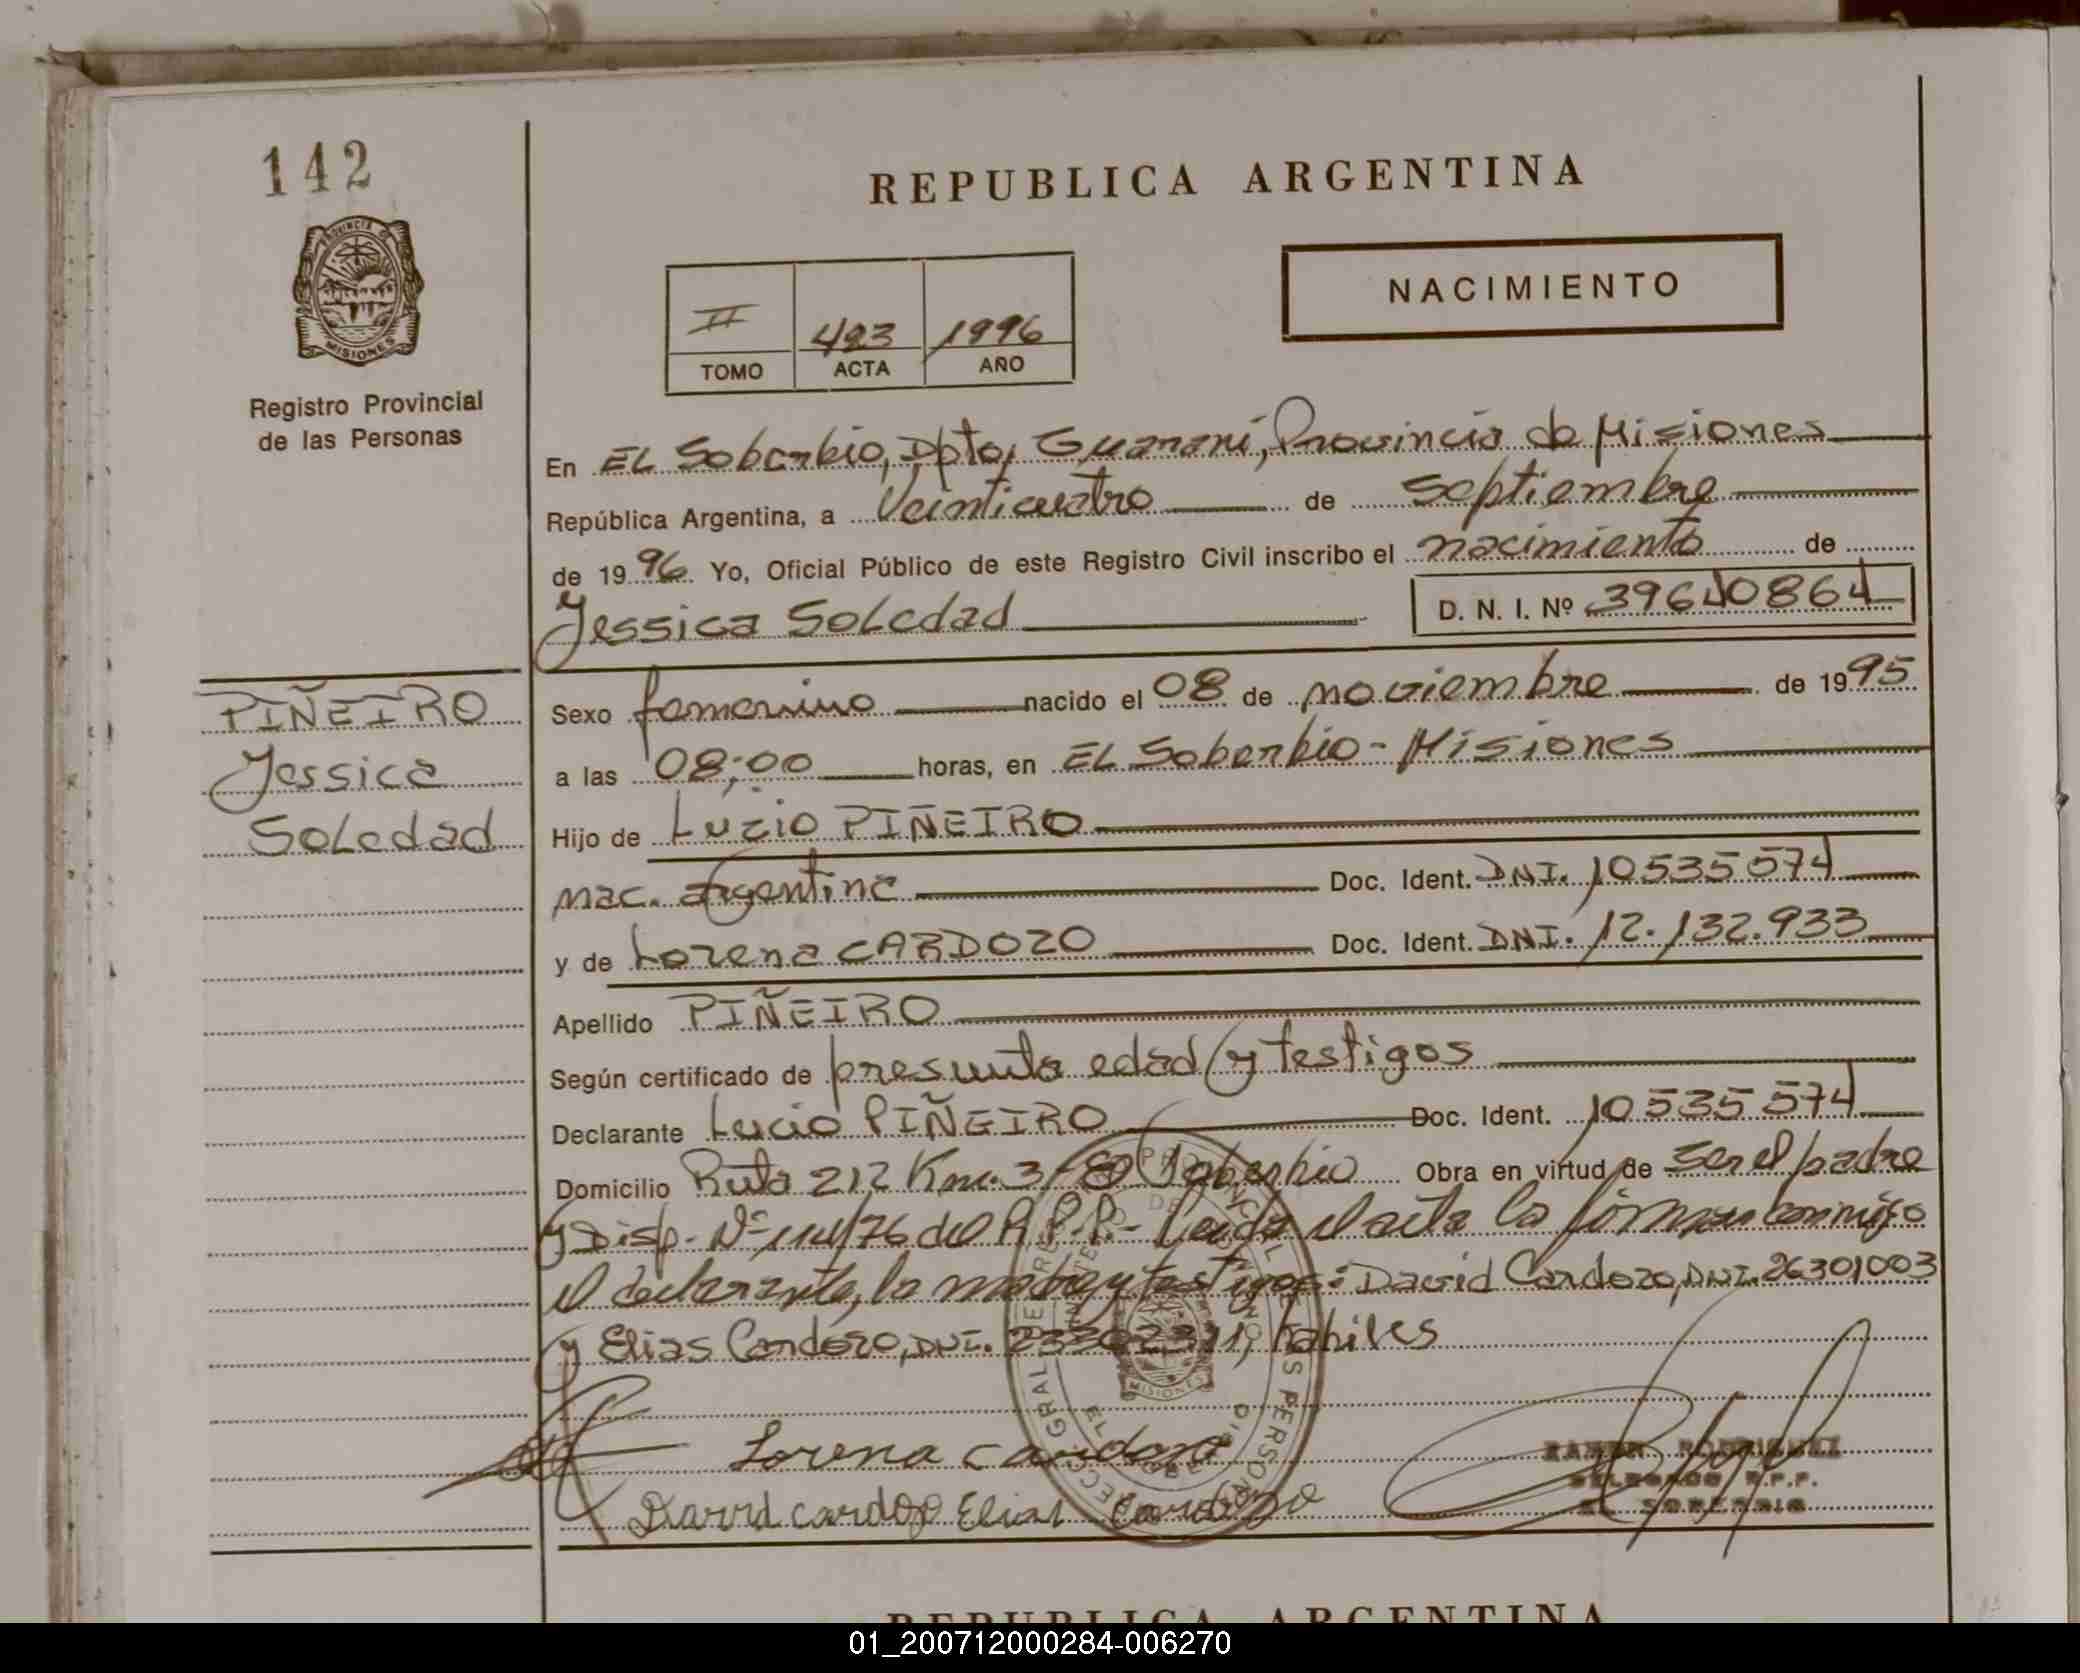 142
REPUBLICA ARGENTINA
PROVINCIA DE
MISIONES
NACIMIENTO
II 493 1996
TOMO ACTA AÑO
Registro Provincial
de las Personas
En EL Soberbio, Dpto, Guaraní, Provincia de Misiones
República Argentina, a Veinticuatro de Septiembre
de 1996 Yo, Oficial Público de este Registro Civil inscribo el nacimiento de
Jessica Soledad D. N. I. Nº 39640864
PIÑEIRO
Jessica
Soledad
Sexo femenino nacido el 08 de noviembre de 1995
a las 08:00 horas, en EL Soberbio - Misiones
Hijo de Lucio PIÑEIRO
nac. argentina Doc. Ident. DNI. 10535574
y de Lorena CARDOZO Doc. Ident. DNI. 12.132.933
Apellido PIÑEIRO
Según certificado de presunta edad y testigos
Declarante Lucio PIÑEIRO Doc. Ident. 10535574
Domicilio Ruta 212 Km. 3 - El Soberbio Obra en virtud de ser el padre
y Disp. Nº 114/76 del R.P.P.- Leída el acta la firman conmigo
el declarante, la madre y testigos: David Cardozo, DNI. 26301003
y Elias Cardozo, DNI. hábiles
Lorena Cardozo
David cardozo Elias Cardozo
RAMON RODRIGUEZ
DELEGADO R.P.P.
EL SOBERBIO
MISIONES
REPUBLICA ARGENTINA
01_200712000284-006270